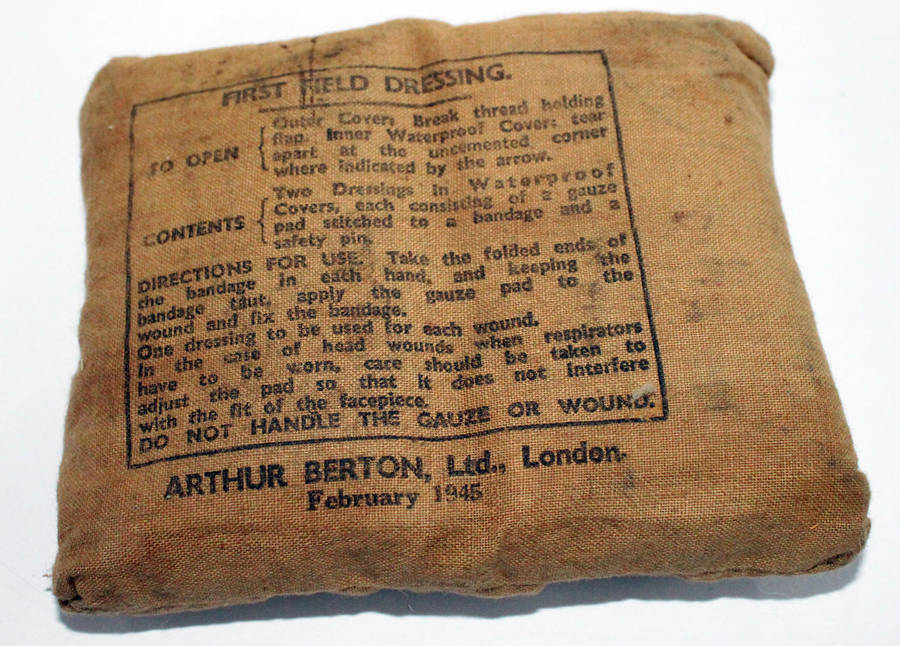 FIRST FIELD DRESSING.
Outer Cover: Break thread holding
flap. Inner Waterproof Cover: tear
TO OPEN { apart at the uncemented corner
where indicated by the arrow.
Two Dressings in Waterproof
Covers, each consisting of a gauze
CONTENTS { pad stitched to a bandage and a
safety pin.
DIRECTIONS FOR USE. Take the folded ends of
the bandage in each hand, and keeping the
bandage taut, apply the gauze pad to the
wound and fix the bandage.
One dressing to be used for each wound.
In the case of head wounds when respirators
have to be worn, care should be taken to
adjust the pad so that it does not interfere
with the fit of the facepiece.
DO NOT HANDLE THE GAUZE OR WOUND.
ARTHUR BERTON, Ltd., London.
February 1945